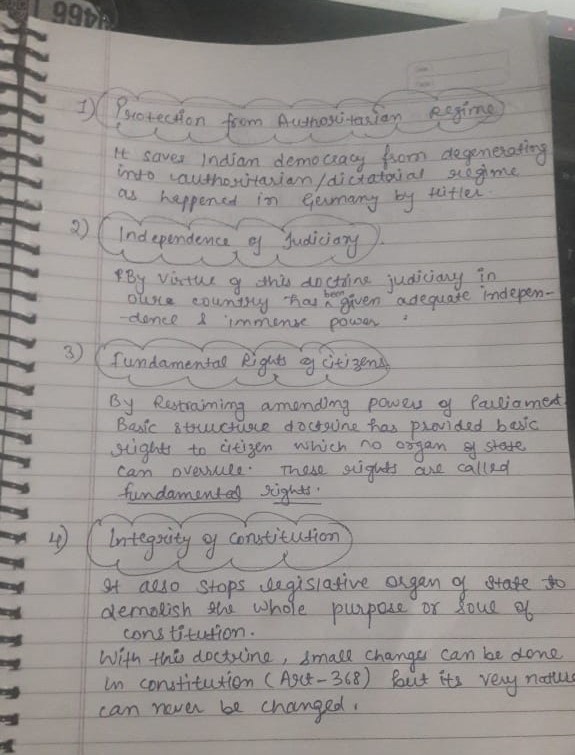 1) Protection from Authoritarian Regime
It saves Indian democracy from degenerating
into authoritarian/dictatorial regime
as happened in Germany by Hitler.
2) Independence of Judiciary.
By virtue of this doctrine judiciary in
our country has been given adequate indepen-
-dence & immense power.
3) Fundamental Rights of citizens
By Restraining amending powers of Parliament
Basic structure doctrine has provided basic
rights to citizen which no organ of state
can overrule. These rights are called
fundamental rights.
4) Integrity of constitution
It also stops legislative organ of state to
demolish the whole purpose or soul of
constitution.
With this doctrine, small changes can be done
in constitution (Art-368) but its very nature
can never be changed.